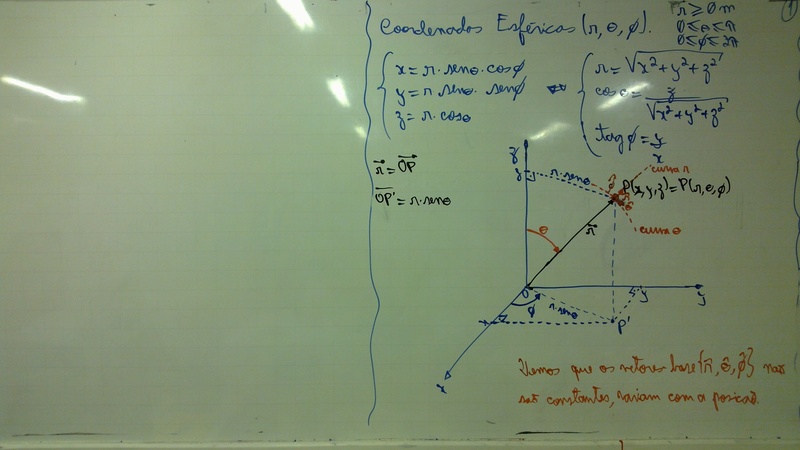 Coordenadas Esféricas (r, θ, φ).
r ≥ 0 m
0 ≤ θ ≤ π
0 ≤ φ ≤ 2π
1
x = r · senθ · cosφ
y = r senθ · senφ
z = r · cosθ
⇔
r = √x² + y² + z²
cosθ = z / √x² + y² + z²
tag φ = y / x
r⃗ = OP⃗
OP' = r · senθ
z
z
r · senθ
curva r
P(x, y, z) = P(r, θ, φ)
curva θ
θ
r⃗
O
y
y
φ
r · senθ
P'
x
x
Vemos que os vetores base {r̂, θ̂, φ̂} não
são constantes, variam com a posição.